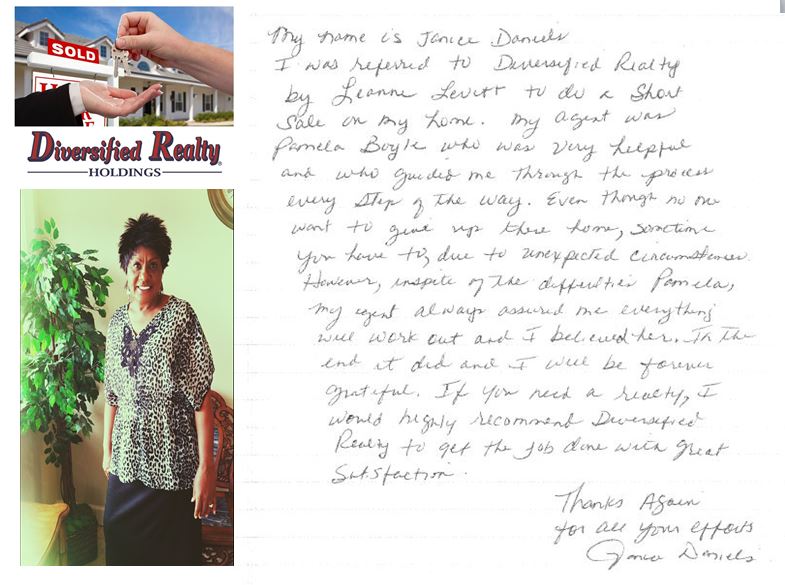 SOLD
Diversified Realty
HOLDINGS
My name is Janice Daniels
I was referred to Diversified Realty
by Leanne Levitt to do a Short
Sale on my home. My agent was
Pamela Boyle who was very helpful
and who guided me through the process
every step of the way. Even though no one
want to give up there home, sometime
you have to, due to unexpected circumstances.
However, inspite of the difficulties Pamela,
my agent always assured me everything
will work out and I believed her. In the
end it did and I will be forever
grateful. If you need a realty, I
would highly recommend Diversified
Realty to get the job done with great
Satisfaction.
Thanks Again
for all your efforts
Janice Daniels